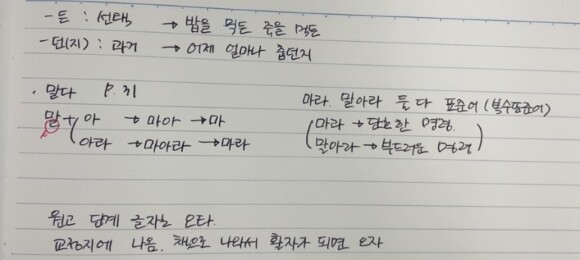 - 든 : 선택 → 밥을 먹든 죽을 먹든
- 던(지) : 과거 → 어제 얼마나 춥던지
· 말다 P. 71
마라. 말아라 둘 다 표준어 (복수표준어)
말 + 아 → 마아 → 마
아라 → 마아라 → 마라
마라 → 단호한 명령.
말아라 → 부드러운 명령
원고 단계 글자는 오타.
교정지에 나옴. 책으로 나와서 활자가 되면 오자